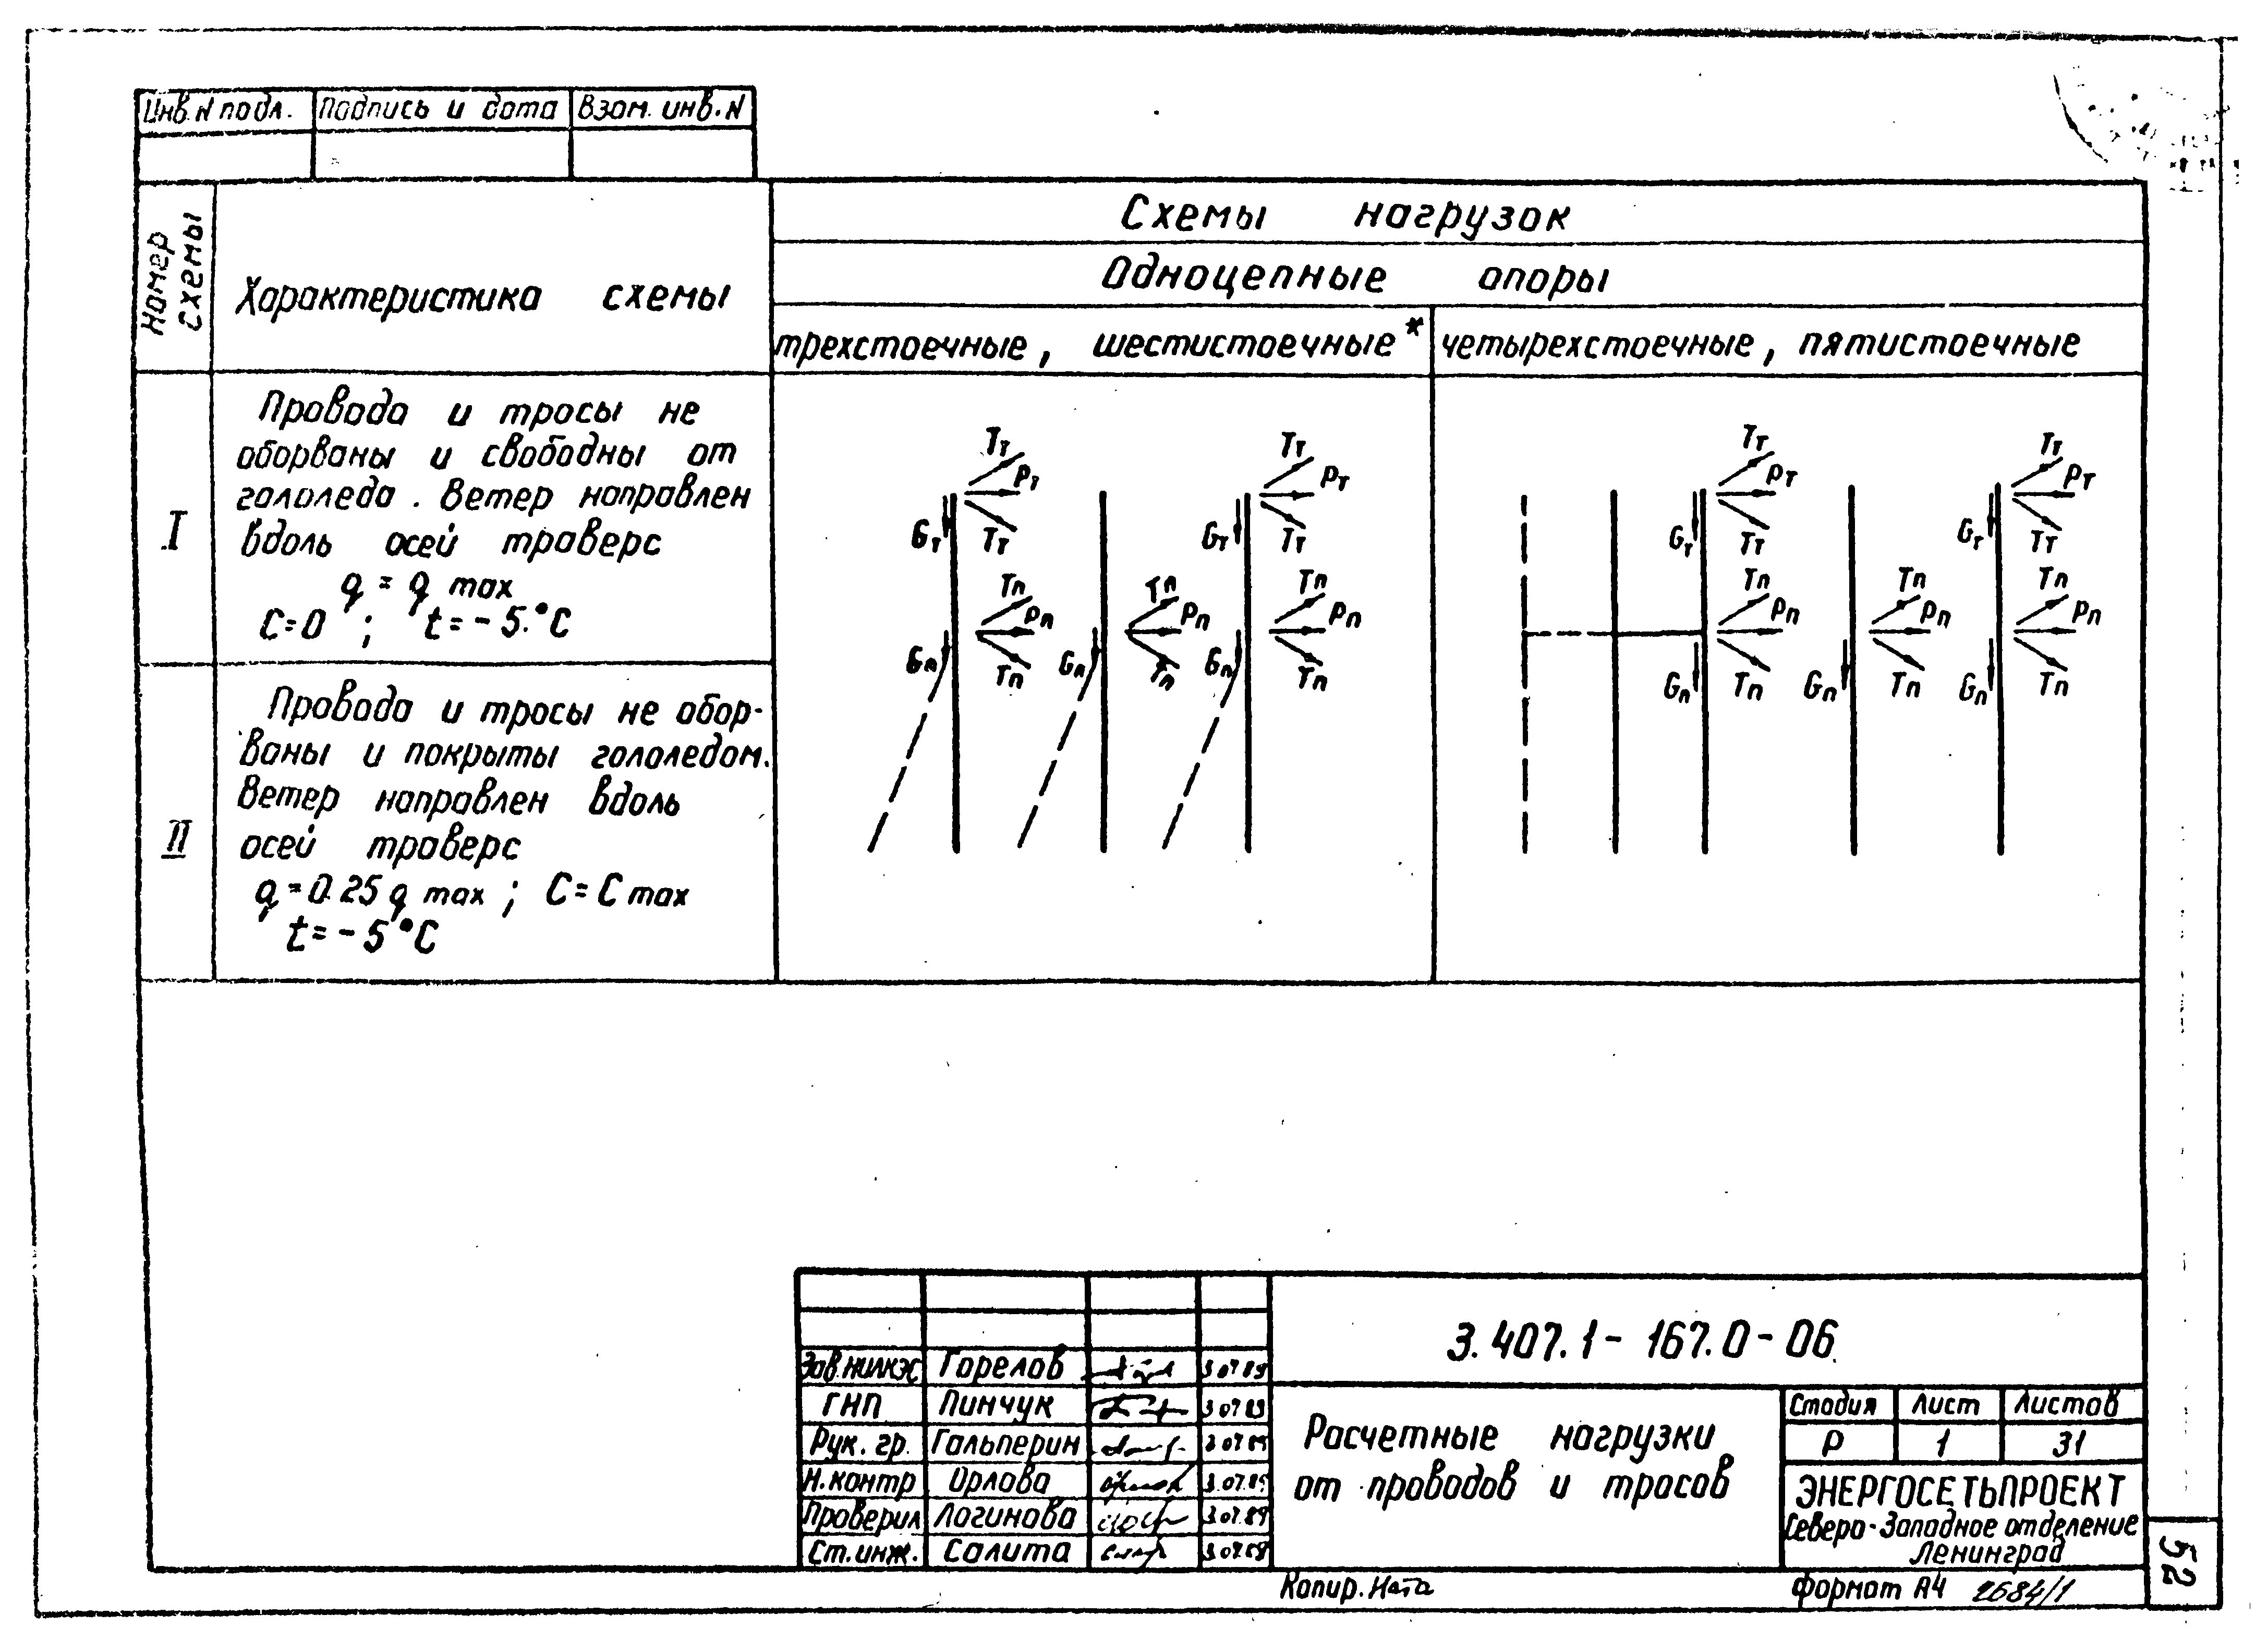 Инв. N подл. Подпись и дата Взам. инв. N
Номер схемы
Характеристика схемы
Схемы нагрузок
Одноцепные опоры
трехстоечные, шестистоечные*
четырехстоечные, пятистоечные
I
Провода и тросы не
оборваны и свободны от
гололеда. Ветер направлен
вдоль осей траверс
q = q max
C=0 ; t = - 5. °C
II
Провода и тросы не обор-
ваны и покрыты гололедом.
Ветер направлен вдоль
осей траверс
q = 0.25 q max ; C = C max
t = - 5 °C
Tт Tт Tт Tт
Pт Pт Pт Pт
Gт Tт Gт Tт Gт Tт Gт Tт
Tп Tп Tп Tп Tп Tп
Pп Pп Pп Pп Pп Pп
Gп Tп Gп Tп Gп Tп Gп Tп Gп Tп Gп Tп
3.407.1 - 167.0 - 06
Зав. НИЛКЭС Горелов 3.07.89
ГНП Пинчук 3.07.89
Рук. гр. Гальперин 3.07.89
Н. контр Орлова 3.07.89
Проверил Логинова 3.07.89
Ст. инж. Салита 3.07.89
Расчетные нагрузки
от проводов и тросов
Стадия Лист Листов
Р 1 31
ЭНЕРГОСЕТЬПРОЕКТ
Северо-Западное отделение
Ленинград
52
Копир. Ната
формат А4 2684/1